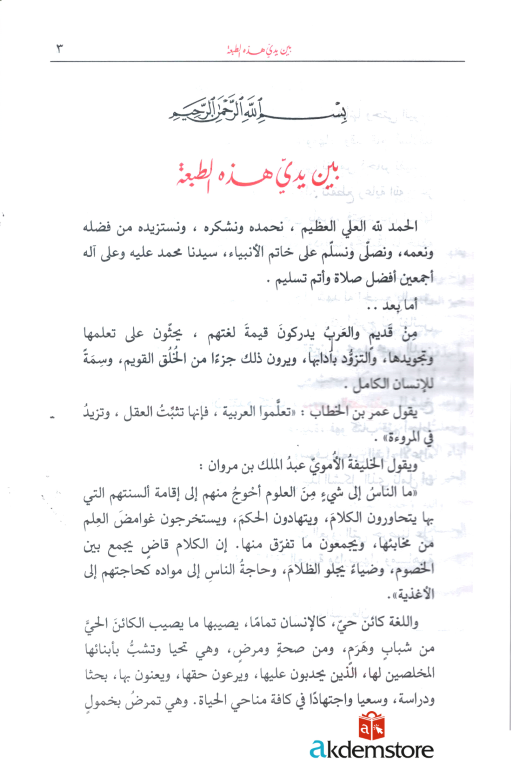 بين يديّ هذه الطبعة
٣
بِسْمِ اللَّهِ الرَّحْمَٰنِ الرَّحِيمِ
بين يديّ هذه الطبعة
الحمد لله العلي العظيم ، نحمده ونشكره ، ونستزيده من فضله
ونعمه، ونصلّى ونسلّم على خاتم الأنبياء، سيدنا محمد عليه وعلى آله
أجمعين أفضل صلاة وأتم تسليم .
أما بعد . .
مِنْ قديمٍ والعَربُ يدركونَ قيمةَ لغتهم ، يحثّون على تعلمها
وتجويدها، والتزوُّد بآدابها، ويرون ذلك جزءًا من الخُلق القويم، وسِمَةً
للإنسان الكامل .
يقول عمر بن الخطاب : «تعلَّموا العربية ، فإنها تثبِّتُ العقل ، وتزيدُ
في المروءة» .
ويقول الخليفةُ الأمويّ عبدُ الملك بن مروان :
«ما الناسُ إلى شيءٍ مِنَ العلوم أحْوجُ منهم إلى إقامة ألسنتهم التي
بها يتحاورون الكلامَ، ويتهادون الحكمَ، ويستخرجون غوامضَ العِلم
من مخابئها، ويجمعون ما تفرّق منها. إن الكلام قاضٍ يجمع بين
الخصوم، وضياءٌ يجلو الظلامَ، وحاجةُ الناسِ إلى مواده كحاجتهم إلى
الأغذية».
واللغة كائن حيّ، كالإنسان تمامًا، يصيبها ما يصيب الكائنَ الحيَّ
من شبابٍ وهَرَمٍ، ومن صحةٍ ومرضٍ، وهي تحيا وتشبُّ بأبنائها
المخلصين لها، الذين يحدبون عليها، ويرعون حقها، ويعنون بها، بحثا
ودراسة، وسعيا واجتهادًا في كافة مناحي الحياة. وهي تمرضُ بخمولِ
akdemstore